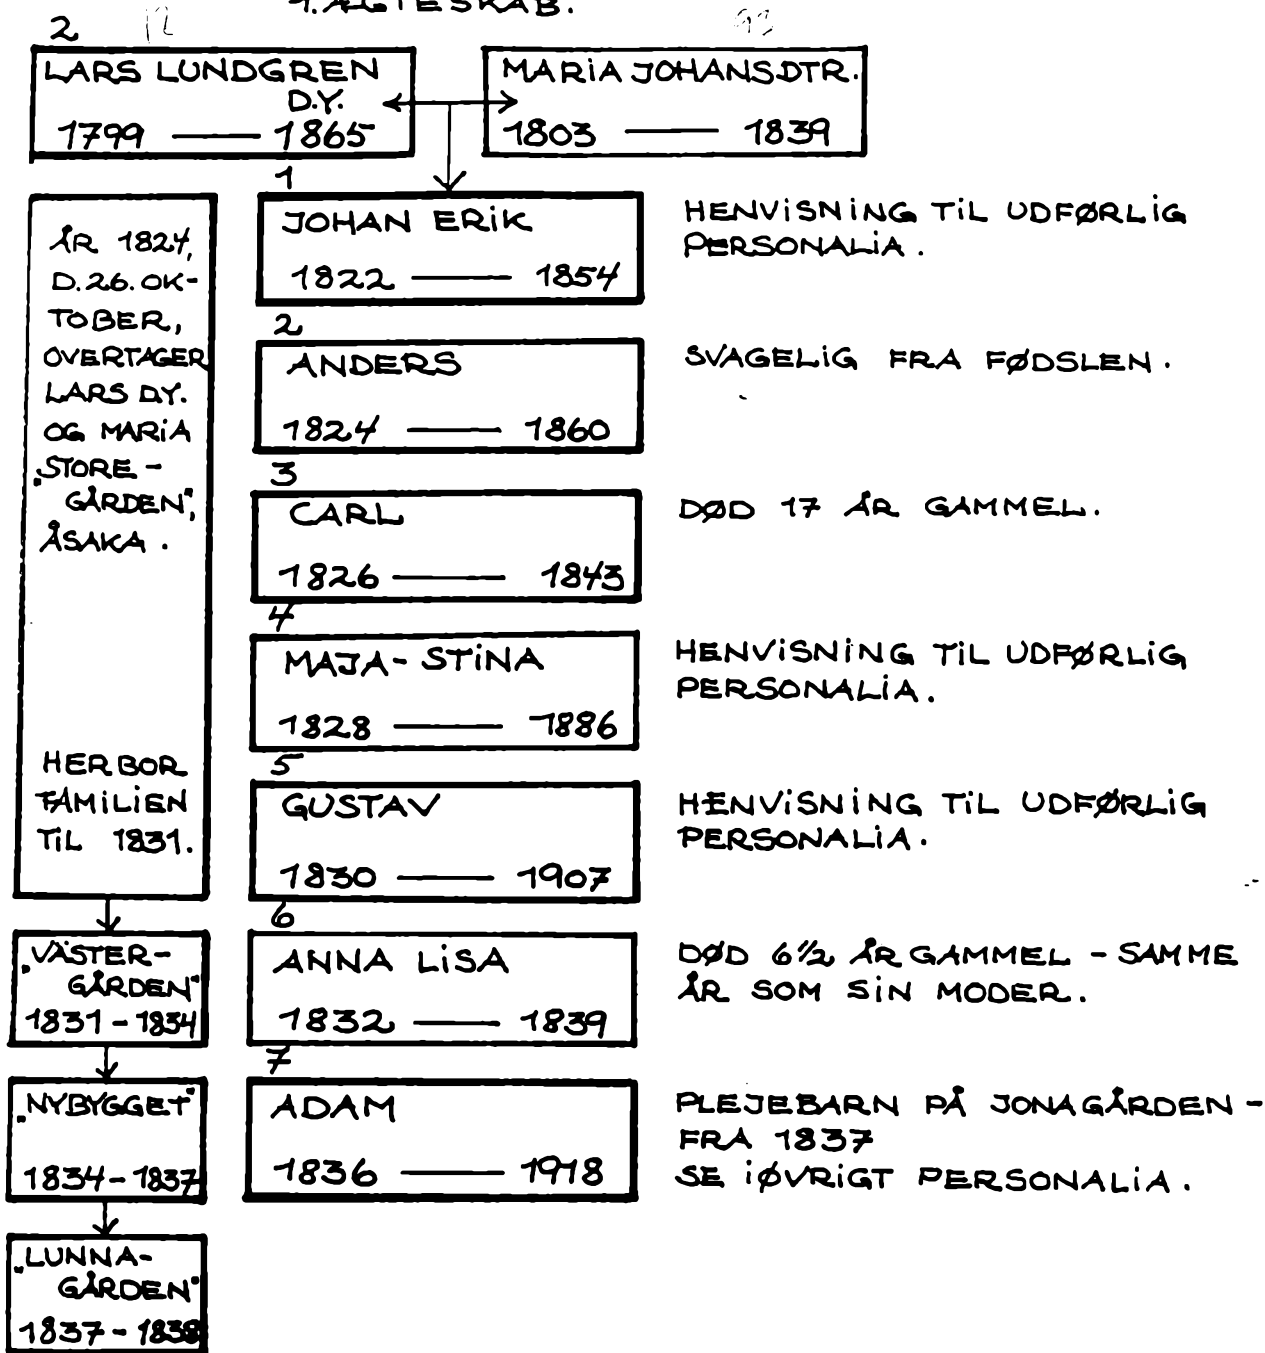 1. ÆGTESKAB.
2
LARS LUNDGREN
D.Y.
1799 — 1865
MARIA JOHANSDTR.
1803 — 1839
ÅR 1824,
D. 26. OK-
TOBER,
OVERTAGER
LARS D.Y.
OG MARIA
„STORE-
GÅRDEN",
ÅSAKA.
HER BOR
FAMILIEN
TIL 1831.
„VÄSTER-
GÅRDEN"
1831 - 1834
„NYBYGGET"
1834 - 1837
„LUNNA-
GÅRDEN"
1837 - 1838
1
JOHAN ERIK
1822 — 1854
HENVISNING TIL UDFØRLIG
PERSONALIA.
2
ANDERS
1824 — 1860
SVAGELIG FRA FØDSLEN.
3
CARL
1826 — 1843
DØD 17 ÅR GAMMEL.
4
MAJA-STINA
1828 — 1886
HENVISNING TIL UDFØRLIG
PERSONALIA.
5
GUSTAV
1830 — 1907
HENVISNING TIL UDFØRLIG
PERSONALIA.
6
ANNA LISA
1832 — 1839
DØD 6½ ÅR GAMMEL - SAMME
ÅR SOM SIN MODER.
7
ADAM
1836 — 1918
PLEJEBARN PÅ JONAGÅRDEN -
FRA 1837
SE IØVRIGT PERSONALIA.